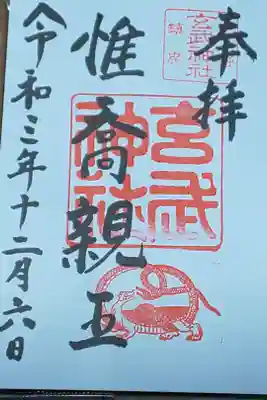 奉拝
玄武神社
惟喬親王
玄武神社
令和三年十二月六日